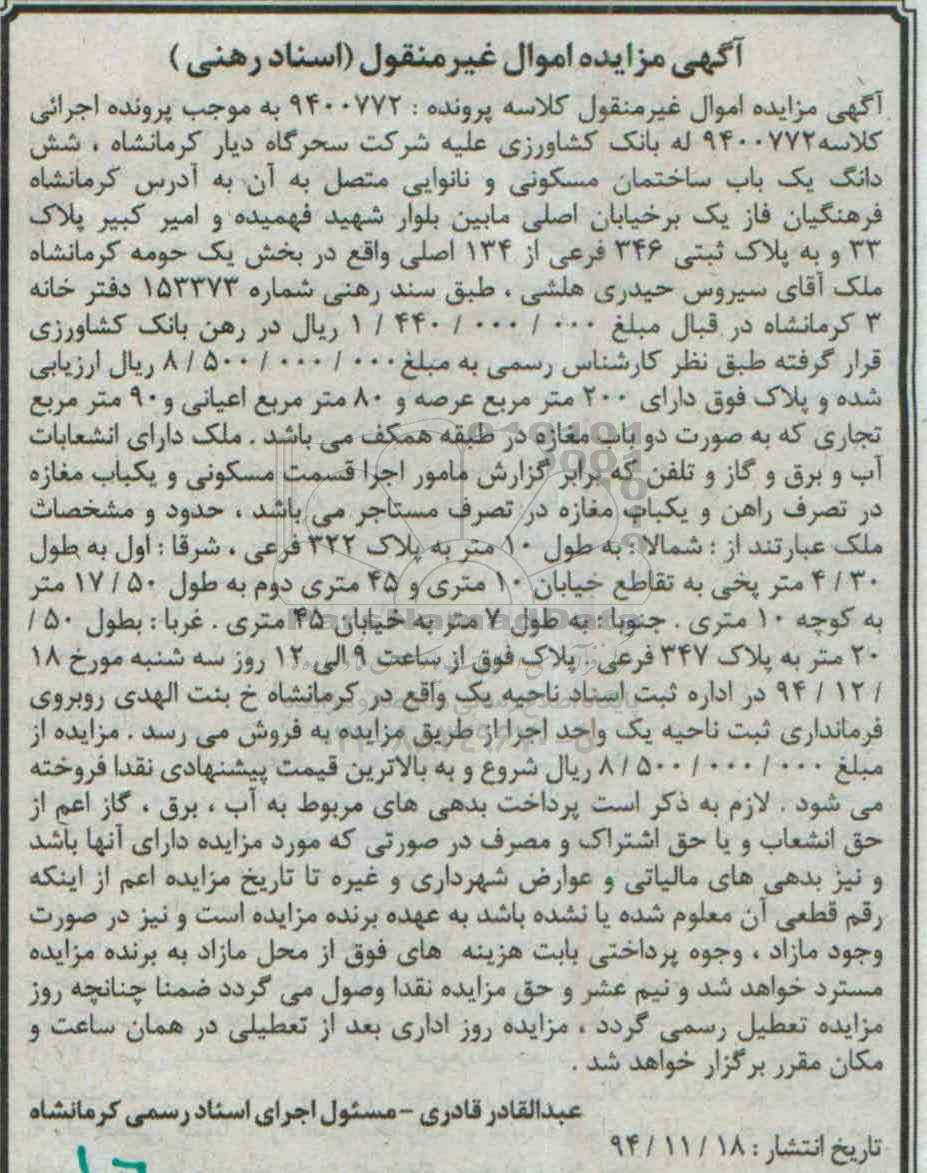 آگهی مزایده اموال غیرمنقول (اسناد رهنی )
آگهی مزایده اموال غیرمنقول کلاسه پرونده : ۹۴۰۰۷۷۲ به موجب پرونده اجرائی
کلاسه۹۴۰۰۷۷۲ له بانک کشاورزی علیه شرکت سحرگاه دیار کرمانشاه ، شش
دانگ یک باب ساختمان مسکونی و نانوایی متصل به آن به آدرس کرمانشاه
فرهنگیان فاز یک برخیابان اصلی مابین بلوار شهید فهمیده و امیر کبیر پلاک
۳۳ و به پلاک ثبتی ۳۴۶ فرعی از ۱۳۴ اصلی واقع در بخش یک حومه کرمانشاه
ملک آقای سیروس حیدری هلشی ، طبق سند رهنی شماره ۱۵۳۳۷۳ دفتر خانه
۳ کرمانشاه در قبال مبلغ ۰۰۰ / ۰۰۰ / ۴۴۰ / ۱ ریال در رهن بانک کشاورزی
قرار گرفته طبق نظر کارشناس رسمی به مبلغ ۰۰۰ / ۰۰۰ / ۵۰۰ / ۸ ریال ارزیابی
شده و پلاک فوق دارای ۲۰۰ متر مربع عرصه و ۸۰ متر مربع اعیانی و۹۰ متر مربع
تجاری که به صورت دو باب مغازه در طبقه همکف می باشد . ملک دارای انشعابات
آب و برق و گاز و تلفن که برابر گزارش مامور اجرا قسمت مسکونی و یکباب مغازه
در تصرف راهن و یکباب مغازه در تصرف مستاجر می باشد ، حدود و مشخصات
ملک عبارتند از : شمالا : به طول ۱۰ متر به پلاک ۳۲۲ فرعی ، شرقا : اول به طول
۴ / ۳۰ متر پخی به تقاطع خیابان ۱۰ متری و ۴۵ متری دوم به طول ۵۰ / ۱۷ متر
به کوچه ۱۰ متری . جنوبا : به طول ۷ متر به خیابان ۴۵ متری . غربا : بطول ۵۰ /
۲۰ متر به پلاک ۳۴۷ فرعی . پلاک فوق از ساعت ۹ الی ۱۲ روز سه شنبه مورخ ۱۸
/ ۱۲ / ۹۴ در اداره ثبت اسناد ناحیه یک واقع در کرمانشاه خ بنت الهدی روبروی
فرمانداری ثبت ناحیه یک واحد اجرا از طریق مزایده به فروش می رسد . مزایده از
مبلغ ۰۰۰ / ۰۰۰ / ۵۰۰ / ۸ ریال شروع و به بالاترین قیمت پیشنهادی نقدا فروخته
می شود . لازم به ذکر است پرداخت بدهی های مربوط به آب ، برق ، گاز اعم از
حق انشعاب و یا حق اشتراک و مصرف در صورتی که مورد مزایده دارای آنها باشد
و نیز بدهی های مالیاتی و عوارض شهرداری و غیره تا تاریخ مزایده اعم از اینکه
رقم قطعی آن معلوم شده یا نشده باشد به عهده برنده مزایده است و نیز در صورت
وجود مازاد ، وجوه پرداختی بابت هزینه های فوق از محل مازاد به برنده مزایده
مسترد خواهد شد و نیم عشر و حق مزایده نقدا وصول می گردد ضمنا چنانچه روز
مزایده تعطیل رسمی گردد ، مزایده روز اداری بعد از تعطیلی در همان ساعت و
مکان مقرر برگزار خواهد شد .
عبدالقادر قادری -مسئول اجرای اسناد رسمی کرمانشاه
تاریخ انتشار : ۱۸ / ۱۱ / ۹۴